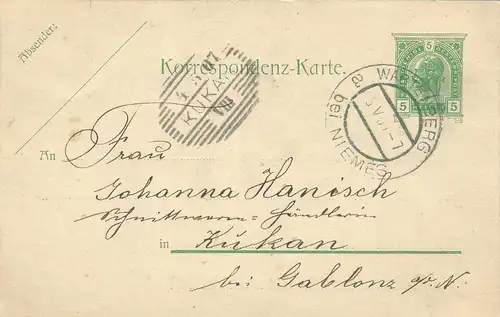 Absender:
Korrespondenz-Karte.
5
5 5
4 5 07
KUKAN
WARTENBERG
bei NIEMES
An Frau
Johanna Hanisch
Schnittwaren-Händlerin
in Kukan
bei Gablonz a/N.